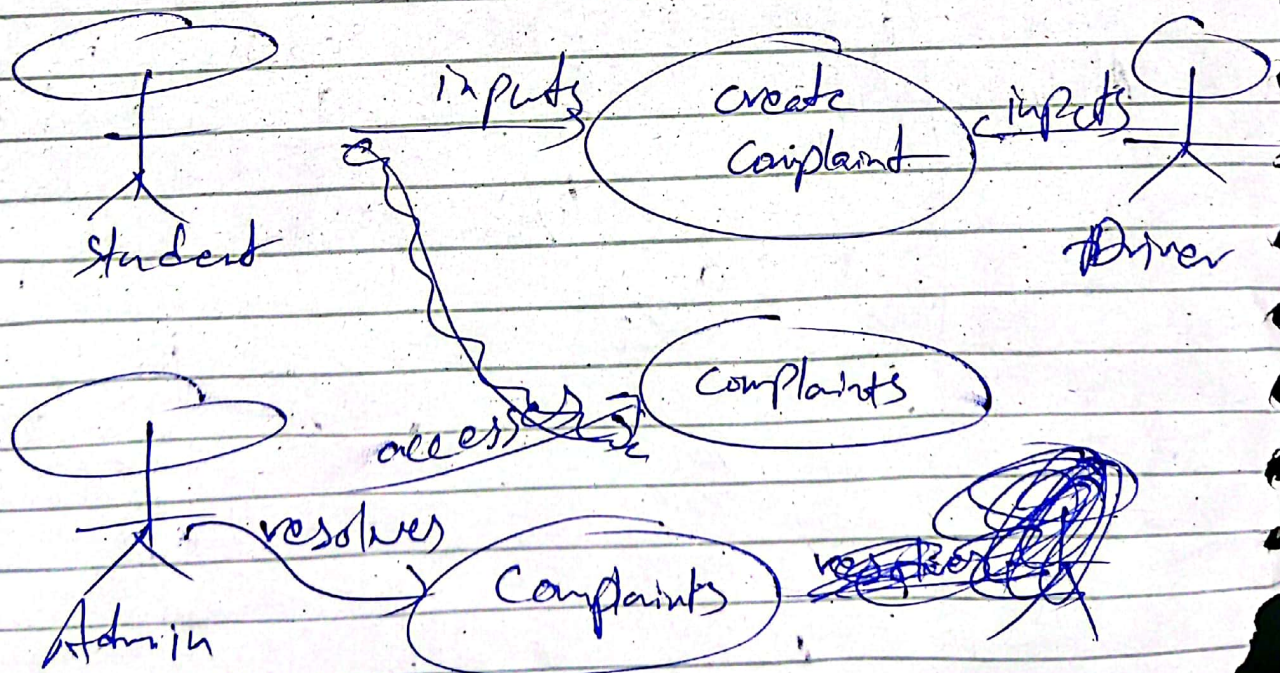 inputs
create
complaint
inputs
student
Driver
complaints
access
resolves
Complaints
Admin